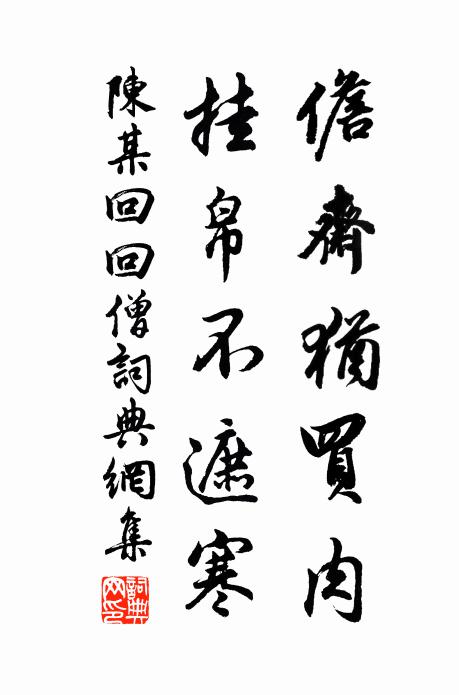 儋齋猶買肉
挂帛不遮寒
陳某回回僧詞典網集
詞典網印